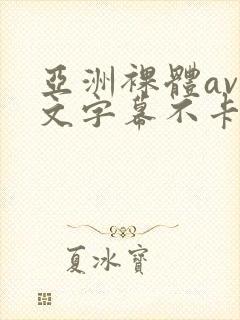 亞洲裸體av
文字幕不卡
夏冰寶